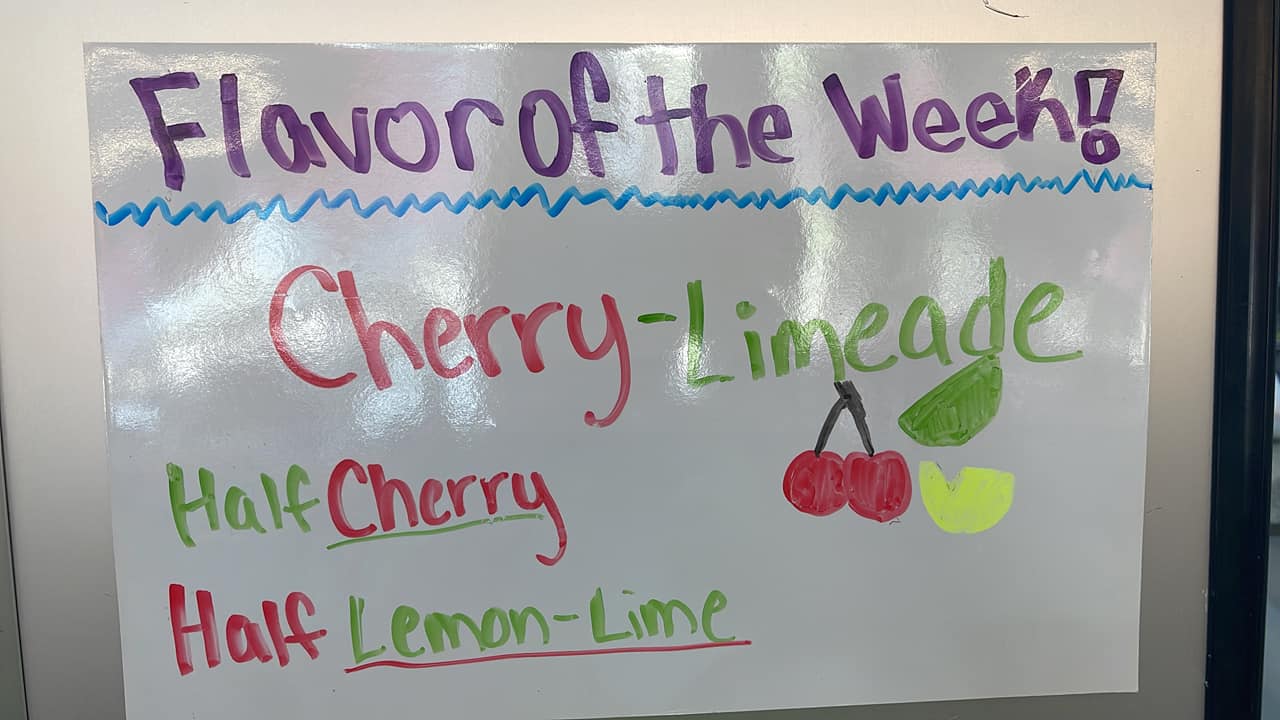 Flavor of the Week!
Cherry-Limeade
Half Cherry
Half Lemon-Lime